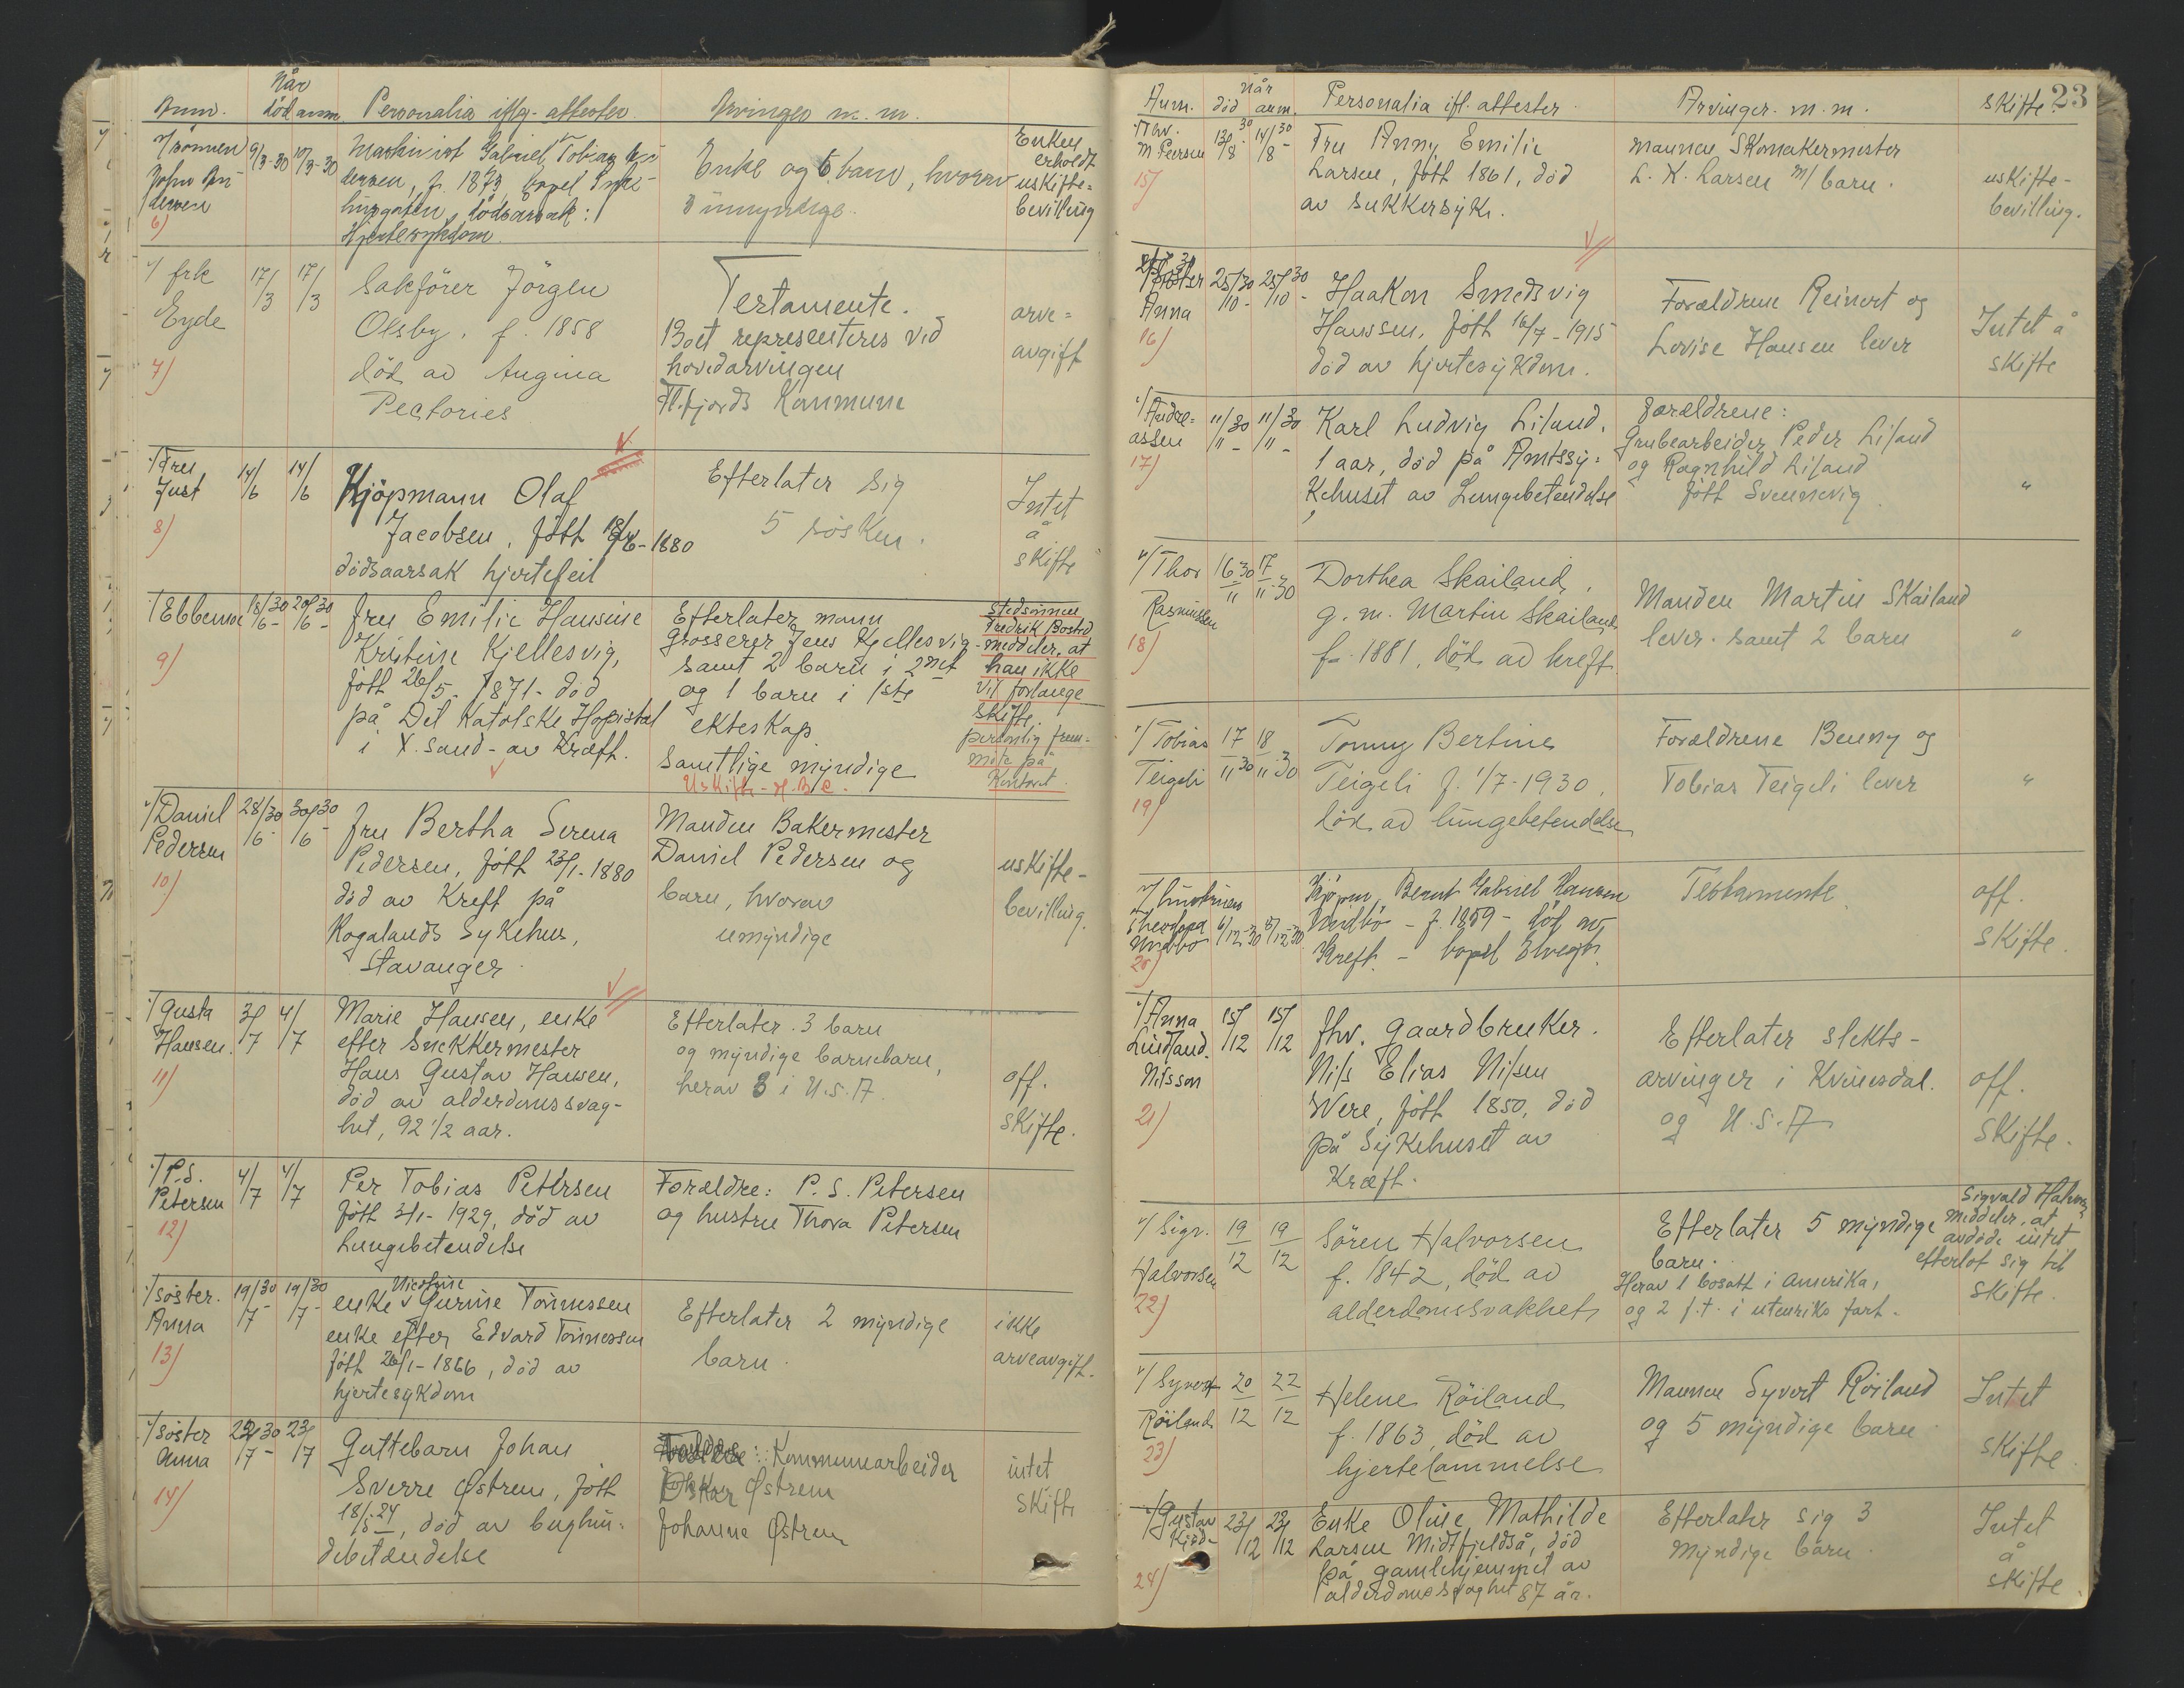 Når
Anm. död anm. Personalia iflg. attester Arvinger m. m.
v/ sönnen 9/3-30 10/3-30 Maskinist Gabriel Tobias
John An- dersen, f. 1873, bopel
dersen dödsårsak:
6) Hjertesykdom.
Enke og 6 barn, hvorav
3 umyndige.
Enken
erholdt
uskifte-
bevilling
v/ frk 17/3 17/3 Sakförer Jörgen
Eyde Olsby, f. 1858
7) död av Angina
Pectories
Testamente.
Boet representeres ved
hovedarvingen
Fl.fjords Kommune
arve-
avgift
v/ Fru 14/6 14/6 Kjöpmann Olaf
Just Jacobsen, fött 18/6-1880
8) dödsaarsak hjertefeil
Efterlater sig
5 sösken.
Intet
å
skifte
v/ Ebbesen 18/6-30 20/6-30 fru Emilie Hansine
9) Kristine Kjellesvig,
fött 26/5-1871- död
på Det Katolske Hopistal
i X.sand- av Kræft.
Efterlater mann
grosserer Jens Kjellesvig
samt 2 barn i 2net
og 1 barn i 1ste
ekteskap
samtlige myndige
Uskifte-H.B.C.
Stedsönnen
Fredrik Bostad
meddeler, at
han ikke
vil forlange
skifte.
personlig frem-
möte på
Kontoret.
v/ Daniel 28/6-30 30/6-30 fru Bertha Serena
Pedersen Pedersen, fött 23/1-1880
10) död av Kreft på
Rogalands Sykehus,
Stavanger.
Manden Bakermester
Daniel Pedersen og
barn, hvorav
umyndige
uskifte-
bevilling.
v/ Gusta 3/7 4/7 Marie Hansen, enke
Hansen. efter Snekkermester
11) Hans Gustav Hansen,
död av alderdomssvag-
het, 92 1/2 aar.
Efterlater 3 barn
og myndige barnebarn,
herav 3 i U.S.A.
off.
skifte.
v/ P.S. 4/7 4/7 Per Tobias Petersen
Petersen fött 3/1-1929, död av
12) Lungebetendelse
Foreldre: P. S. Petersen
og hustru Thora Petersen
v/ söster. 19/7-30 19/7-30 enke v Nicoline Gurine Tönnessen
Anna enke efter Edvard Tönnessen
13) fött 26/1-1866, död av
hjertesykdom
Efterlater 2 myndige
barn.
ikke
arveavgift.
v/ söster 22/7-30 23/7 Guttebarn Johan
Anna Sverre Østrem, fött
14) 18/5-24, död av bughin-
debetændelse
Foreldre: Kommunearbeider
Oskar Østrem
Johanne Østrem
intet
skifte
23
Når
Anm. död anm. Personalia ifl. attester Arvinger m. m. skifte
v/ hv. 13/8-30 14/8-30 Fru Anny Emilie
M Peersen Larsen, fött 1861, död
15) av sukkersyke.
mannen Skomakermester
L. K. Larsen m/ barn.
uskifte-
bevilling.
Söster 25/10-30 25/10-30 Haakon Smedsvig
Anna Hanssen, fött 16/7-1915
16) död av hjertesykdom.
Forældrene Reinert og
Lovise Hansen lever
Intet å
skifte
v/ Andre- 11/11-30 11/11-30 Karl Ludvig Liland.
assen 1 aar, död på Amtssy-
17) kehuset av Lungebetendelse
Forældrene:
Grubearbeider Peder Liland
og Ragnhild Liland
fött Svennevig.
"
v/ Thor 16/11 30 17/11-30 Dorthea Skailand,
Rasmussen g. m. Martin Skailand
18) f. 1881, död av kreft
Manden Martin Skailand
lever. samt 2 barn
"
v/ Tobias 17/11 30 18/11-30 Tonny Bertine
Teigeli Teigeli f. 1/7-1930.
19) död av lungebetendelse
Forældrene Benny og
Tobias Teigeli lever
"
v/ hustruen Kjöpm. Bernt Gabriel Hansen
Theodora 6/12-30 8/12-30 Undbö - f. 1859 - död av
Undbö Kreft. - bopel Elvegt.
20)
Testamente.
off.
skifte.
v/ Anna 15/12 15/12 fhv. gaardbruker.
Lindland. Nils Elias Nilsen
Nilsson Were, fött 1850, död
21) på Sykehuset av
Kræft.
Efterlater slekts-
arvinger i Kvinesdal.
og U.S.A
off.
skifte.
v/ Sigv. 19/12 19/12 Sören Halvorsen
Halvorsen f. 1842, död av
22) alderdomssvakhet
Efterlater 5 myndige
barn.
Herav 1 bosatt i Amerika,
og 2 f.t. i utenriks fart.
Sigvald Halvors.
meddeler, at
avdöde intet
efterlot sig til
skifte.
v/ Syvert 20/12 22/12 Helene Röiland
Röiland f. 1863, död av
23) hjertelammelse
Mannen Syvert Röiland
og 5 myndige barn
Intet
skifte
v/ Gustav 23/12 23/12 Enke Oline Mathilde
Larsen Midtfjeldså, död
24) på gamlehjemmet av
alderdomssvaghet 87 år.
Efterlater sig 3
myndige barn.
Intet
å
skifte.